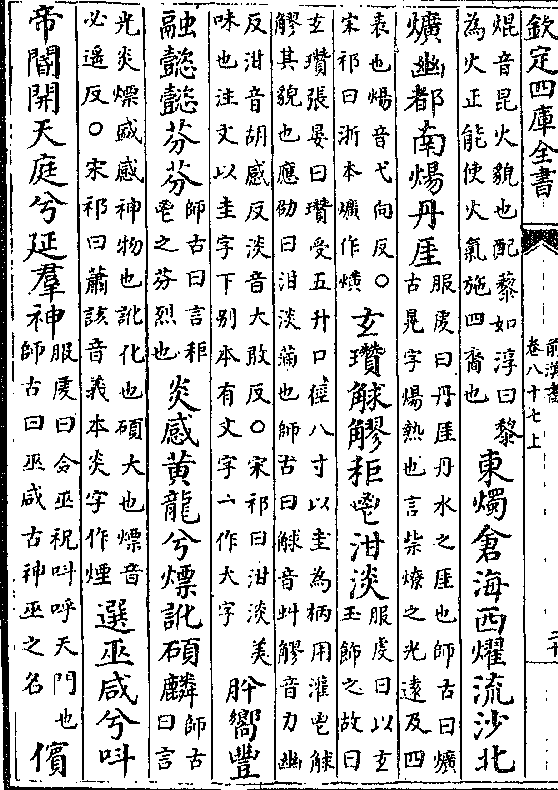 欽定四庫全書
卷八十七上
焜音昆火貌也配黎如淳曰黎
為火正能使火氣施四裔也
東燭倉海西燿流沙北
爌幽都南煬丹厓
服虔曰丹厓丹水之厓也師古曰爌
古晃字煬熱也言柴燎之光遠及四
表也煬音弋向反○
宋祁曰浙本爌作熿
玄瓚觩䚧秬鬯泔淡
服虔曰以玄
玉飾之故曰
玄瓚張晏曰瓚受五升口徑八寸以圭為柄用灌鬯觩
䚧其貌也應劭曰泔淡滿也師古曰觩音虯䚧音力幽
反泔音胡感反淡音大敢反○宋祁曰泔淡美
味也注文以圭字下别本有文字一作大字
肸嚮豐
融懿懿芬芬
師古曰言秬
鬯之芬烈也
炎感黄龍兮熛訛碩麟
師古
曰言
光炎熛盛感神物也訛化也碩大也熛音
必遥反○宋祁曰蕭該音義本炎字作煙
選巫咸兮叫
帝閽開天庭兮延羣神
服虔曰令巫祝叫呼天門也
師古曰巫咸古神巫之名
儐